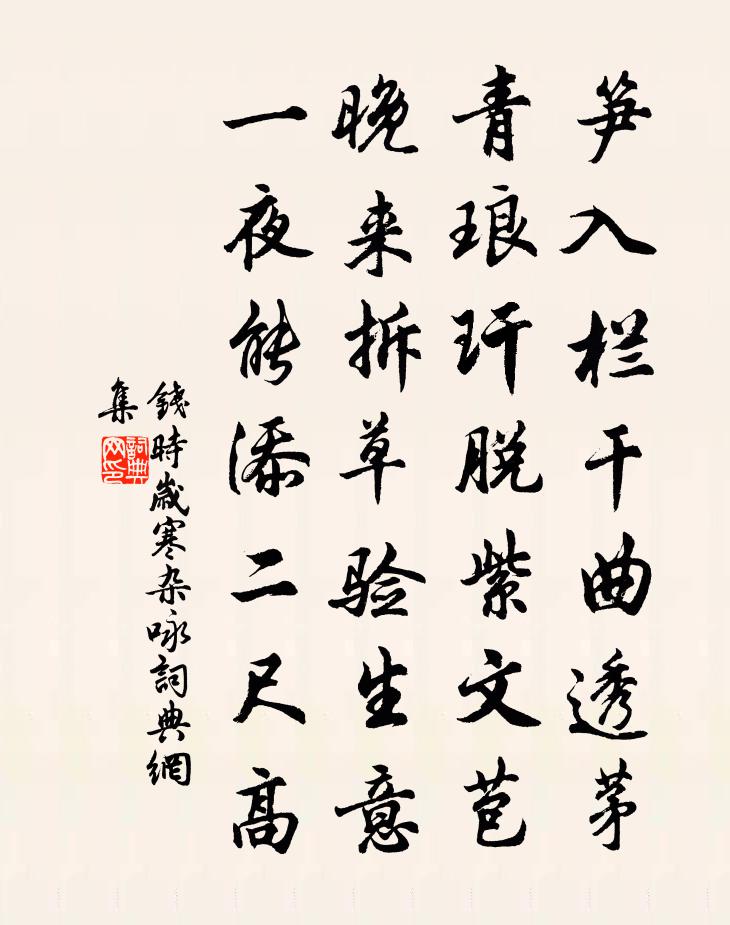 笋入栏干曲透茅
青琅玕脱紫文苞
晚来拆草验生意
一夜能添二尺高
錢時歲寒杂咏詞典網
集
詞典
网印